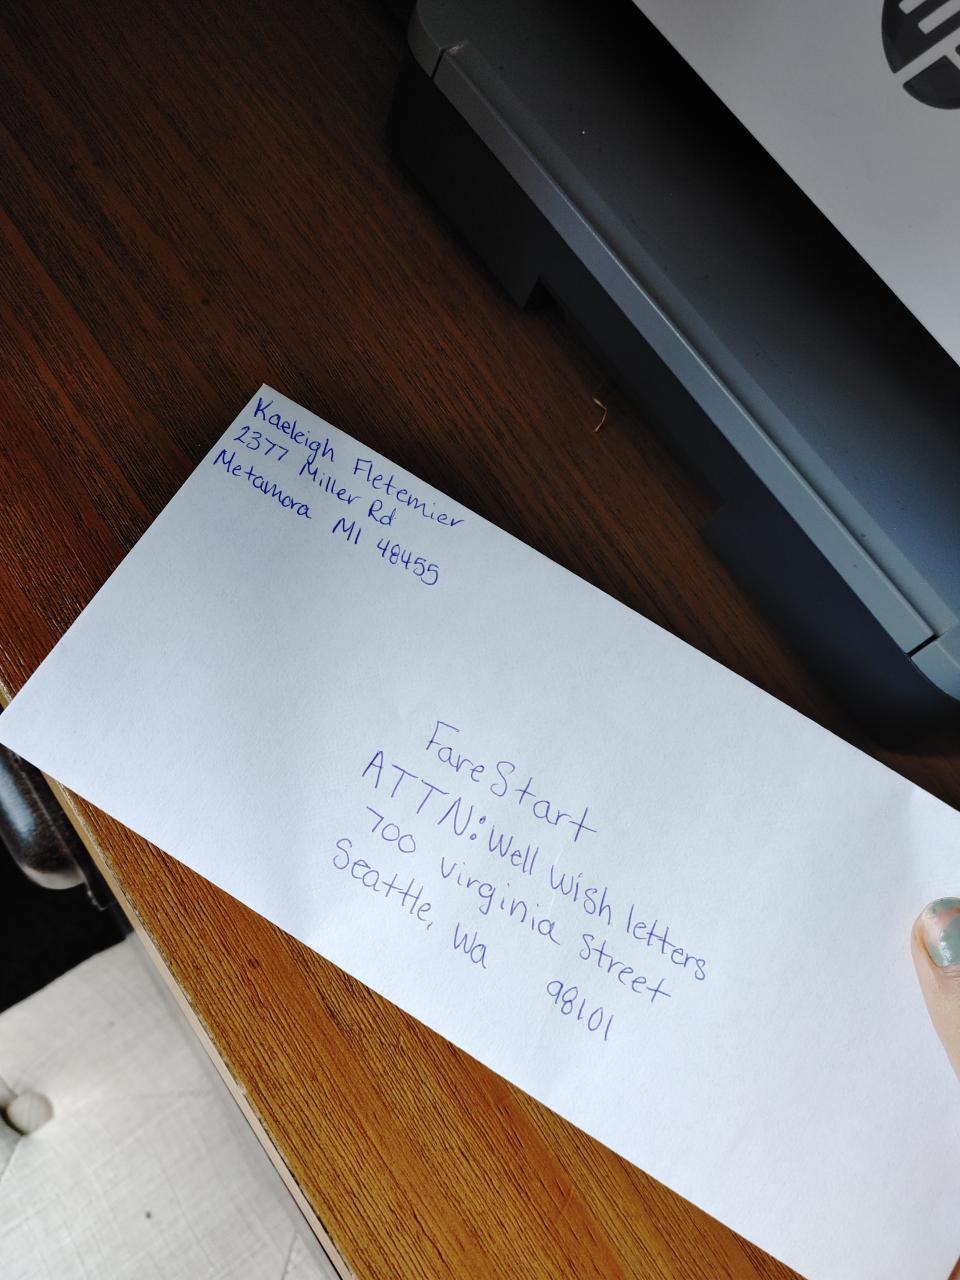 Kaeleigh Fletemier
2377 Miller Rd
Metamora MI 48455
FareStart
ATTN: Well Wish letters
700 virginia street
Seattle, Wa 98101